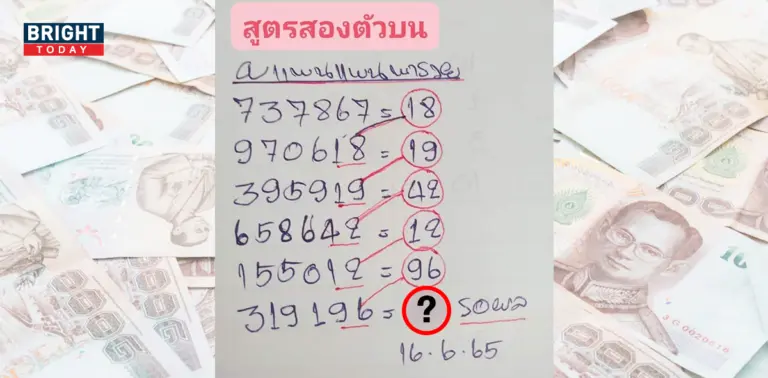 BRIGHT
TODAY
สูตรสองตัวบน
737867 = 18
970618 = 19
395919 = 42
658642 = 12
155012 = 96
319196 = ? รอผล
16.6.65